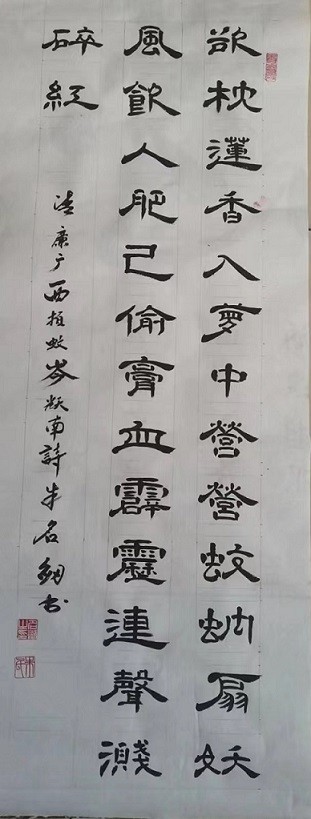 欲枕蓮香入夢中營營蚊蚋扇妖
風飲人肥己偷膏血霹靂連聲濺
碎紅
清廉广西蚊岑南詩名书